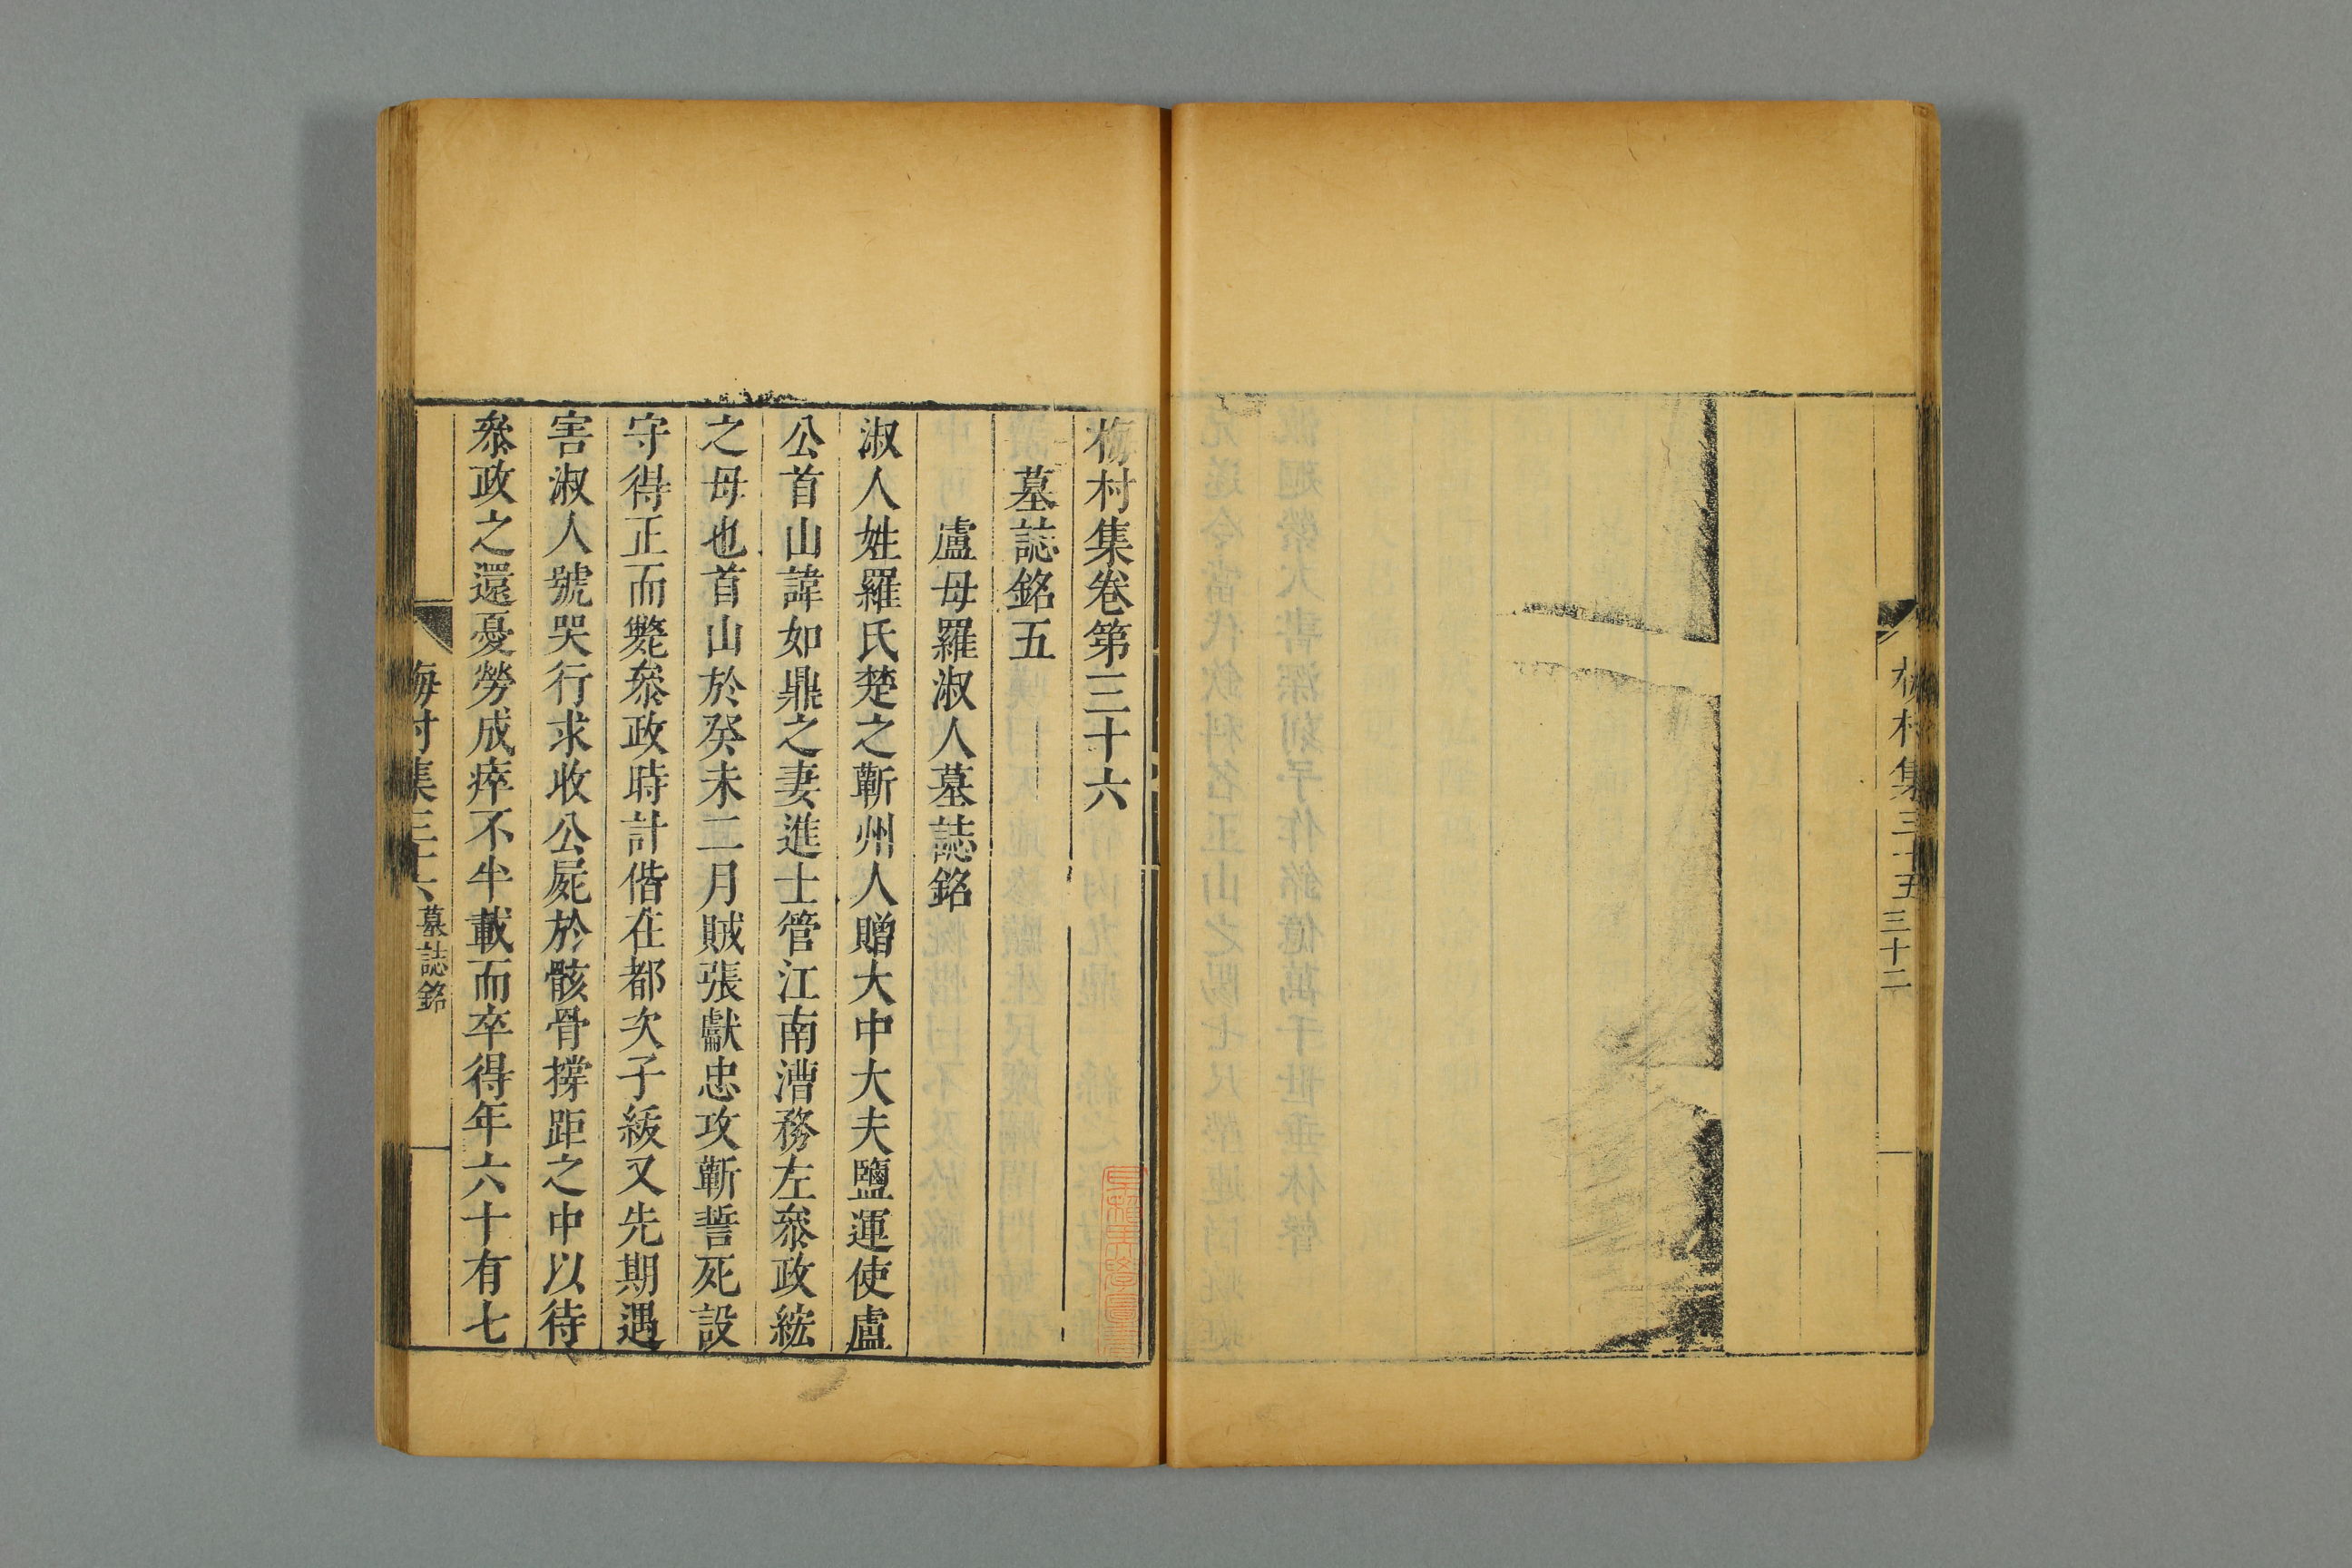 梅村集三十五
三十二
梅村集卷第三十六
墓誌銘五
盧母羅淑人墓誌銘
淑人姓羅氏楚之蘄州人贈大中大夫鹽運使盧
公首山諱如鼎之妻進士管江南漕務左叅政綋
之母也首山於癸未二月賊張獻忠攻蘄誓死設
守得正而斃叅政時計偕在都次子綬又先期遇
害淑人號哭行求收公屍於骸骨撐距之中以待
叅政之還憂勞成瘁不半載而卒得年六十有七
梅村集三十六
墓誌銘